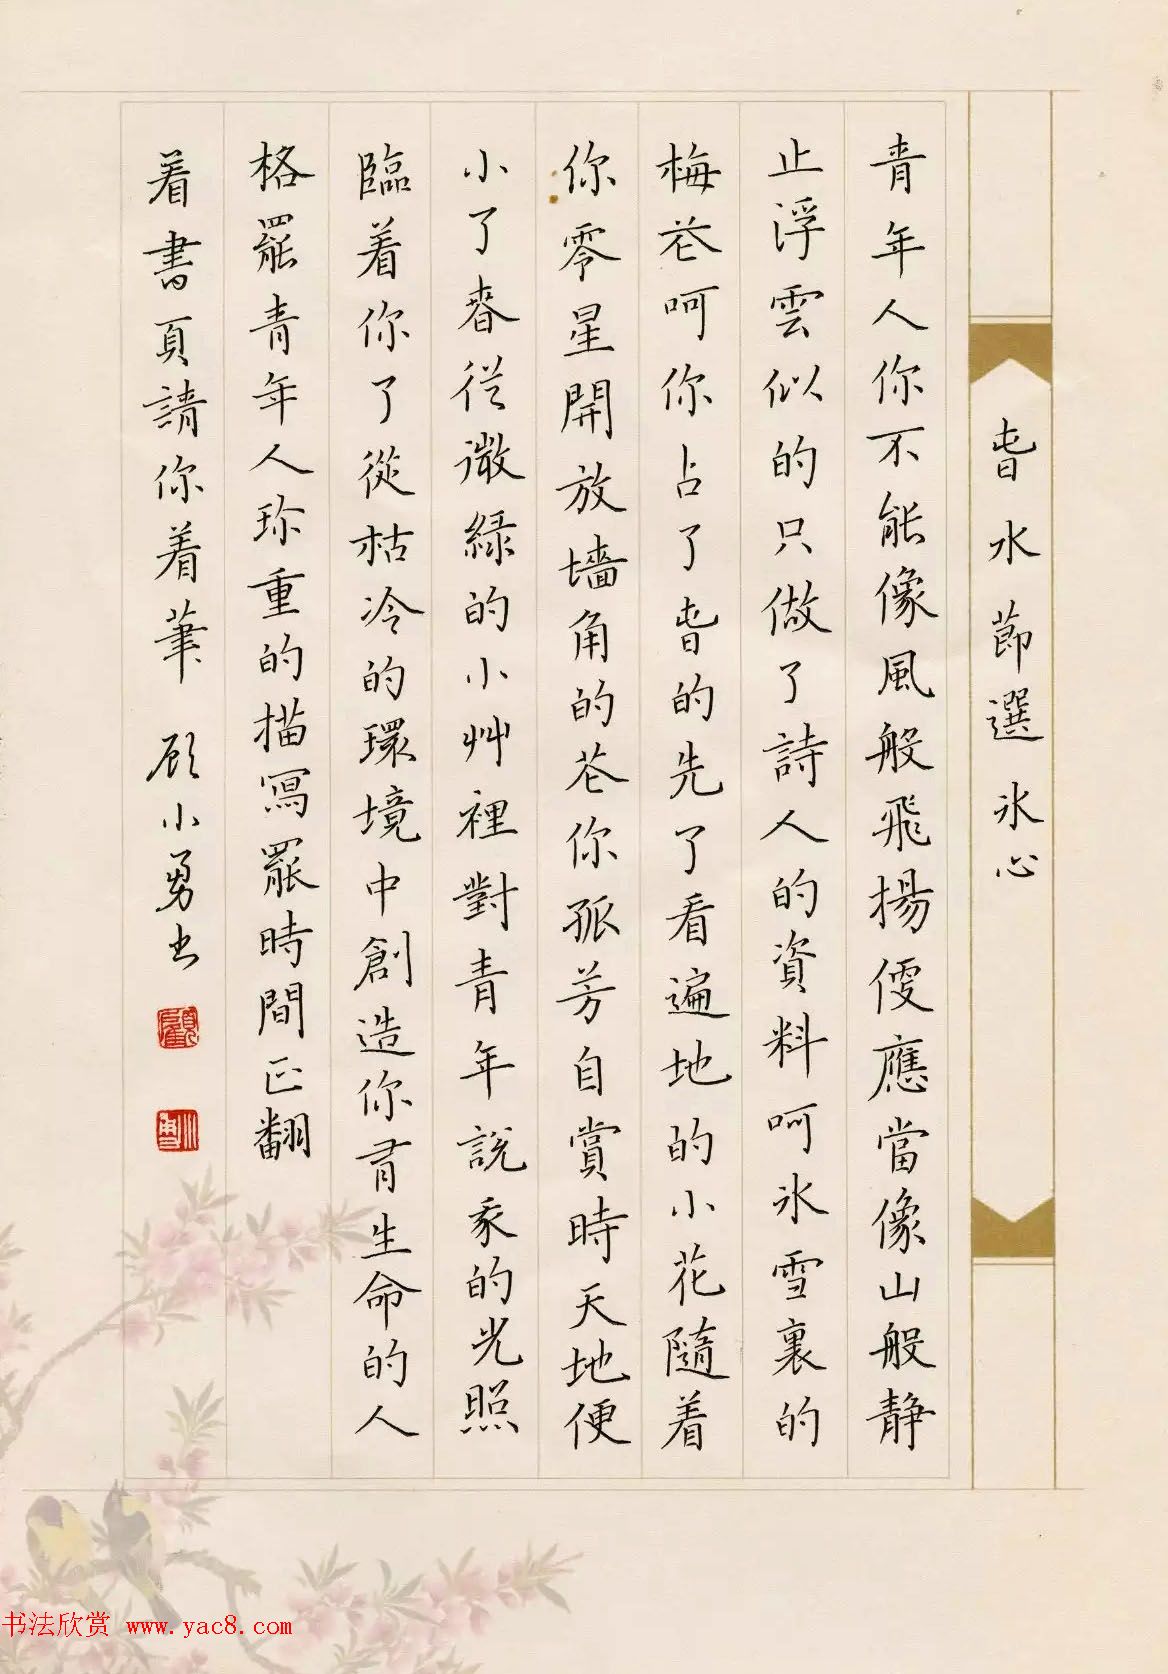 旾水節選 氷心
青年人你不能像風般飛揚便應當像山般静
止浮雲似的只做了詩人的資料呵氷雪裏的
梅花呵你占了旾的先了看遍地的小花隨着
你零星開放墙角的花你孤芳自賞時天地便
小了春從微綠的小艸裡對青年說我的光照
臨着你了從枯冷的環境中創造你有生命的人
格罷青年人珍重的描寫罷時間正翻
着書頁請你着筆 顾小勇书
顧
小勇
书法欣赏 www.yac8.com